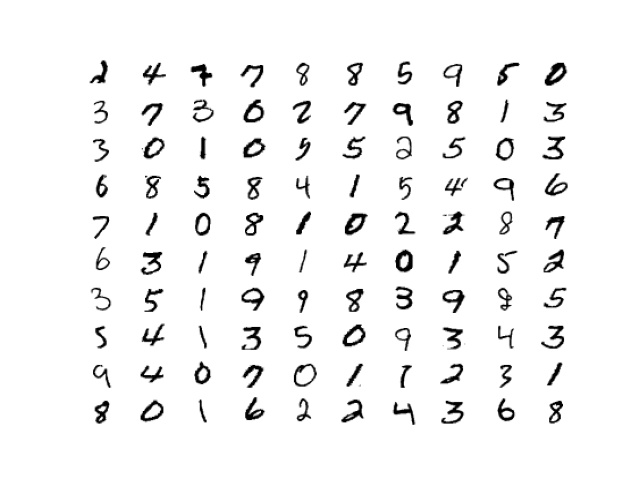 2 4 7 7 8 8 5 9 5 0
3 7 3 0 2 7 9 8 1 3
3 0 1 0 5 5 2 5 0 3
6 8 5 8 4 1 5 4 9 6
7 1 0 8 1 0 2 2 8 7
6 3 1 9 1 4 0 1 5 2
3 5 1 9 9 8 3 9 8 5
5 4 1 3 5 0 9 3 4 3
9 4 0 7 0 1 1 2 3 1
8 0 1 6 2 2 4 3 6 8